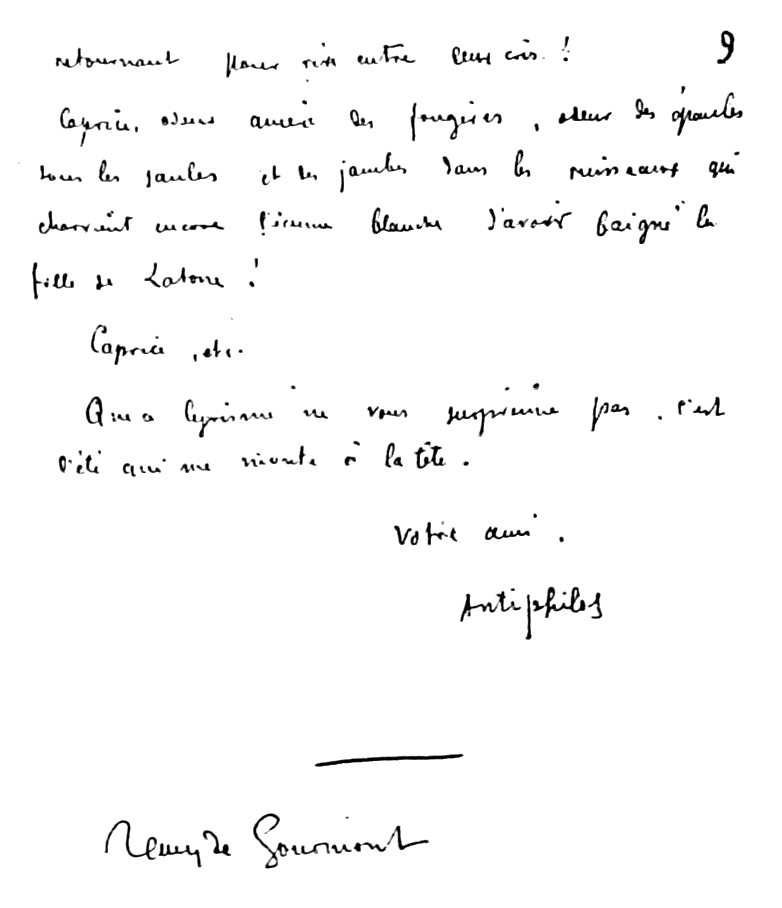 9
retournant pour rire entre deux cris !
Caprice, odeur amère des fougères, odeur des épaules
sous les saules et des jambes dans les ruisseaux qui
charrient encore l'écume blanche d'avoir baigné la
fille de Latone !
Caprice, etc.
Que ce lyrisme ne vous surprenne pas. C'est
l'été qui me monte à la tête.
Votre ami.
Antiphilos
Remy de Gourmont